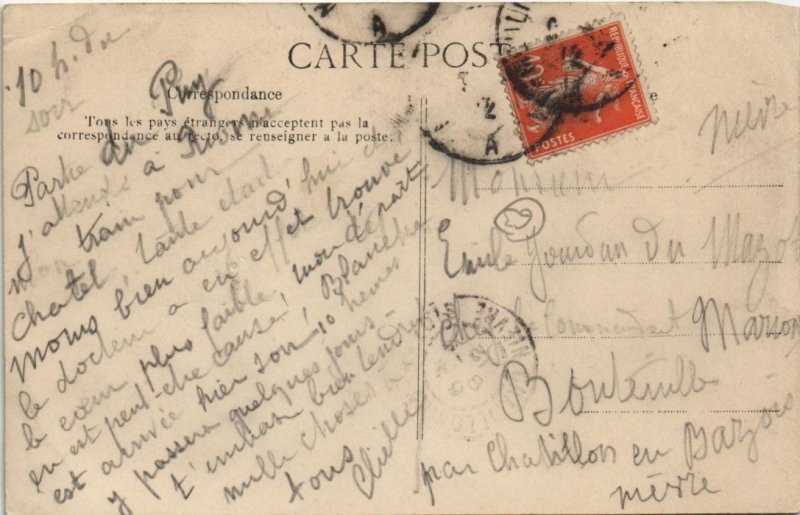 CARTE POST
Correspondance
Tous les pays étrangers n'acceptent pas la
correspondance au recto, se renseigner à la poste.
RÉPUBLIQUE FRANÇAISE
10
POSTES
10 h. du
soir
Partie du Puy
j'attends à Riom
mon train pour
Chatel. Tante était
moins bien aujourd'hui
le docteur a en effet trouvé
le cœur plus faible, mon départ
en est peut-être cause; Blanche
est arrivée hier soir 10 heures
y passera quelques jours
t'embrasse bien tendrement
mille choses à
tous
Nièvre
Monsieur
63
Emile Jourdan du Mazot
Commandant Marion
Bouteuille
par Chatillon en Bazois
Nièvre